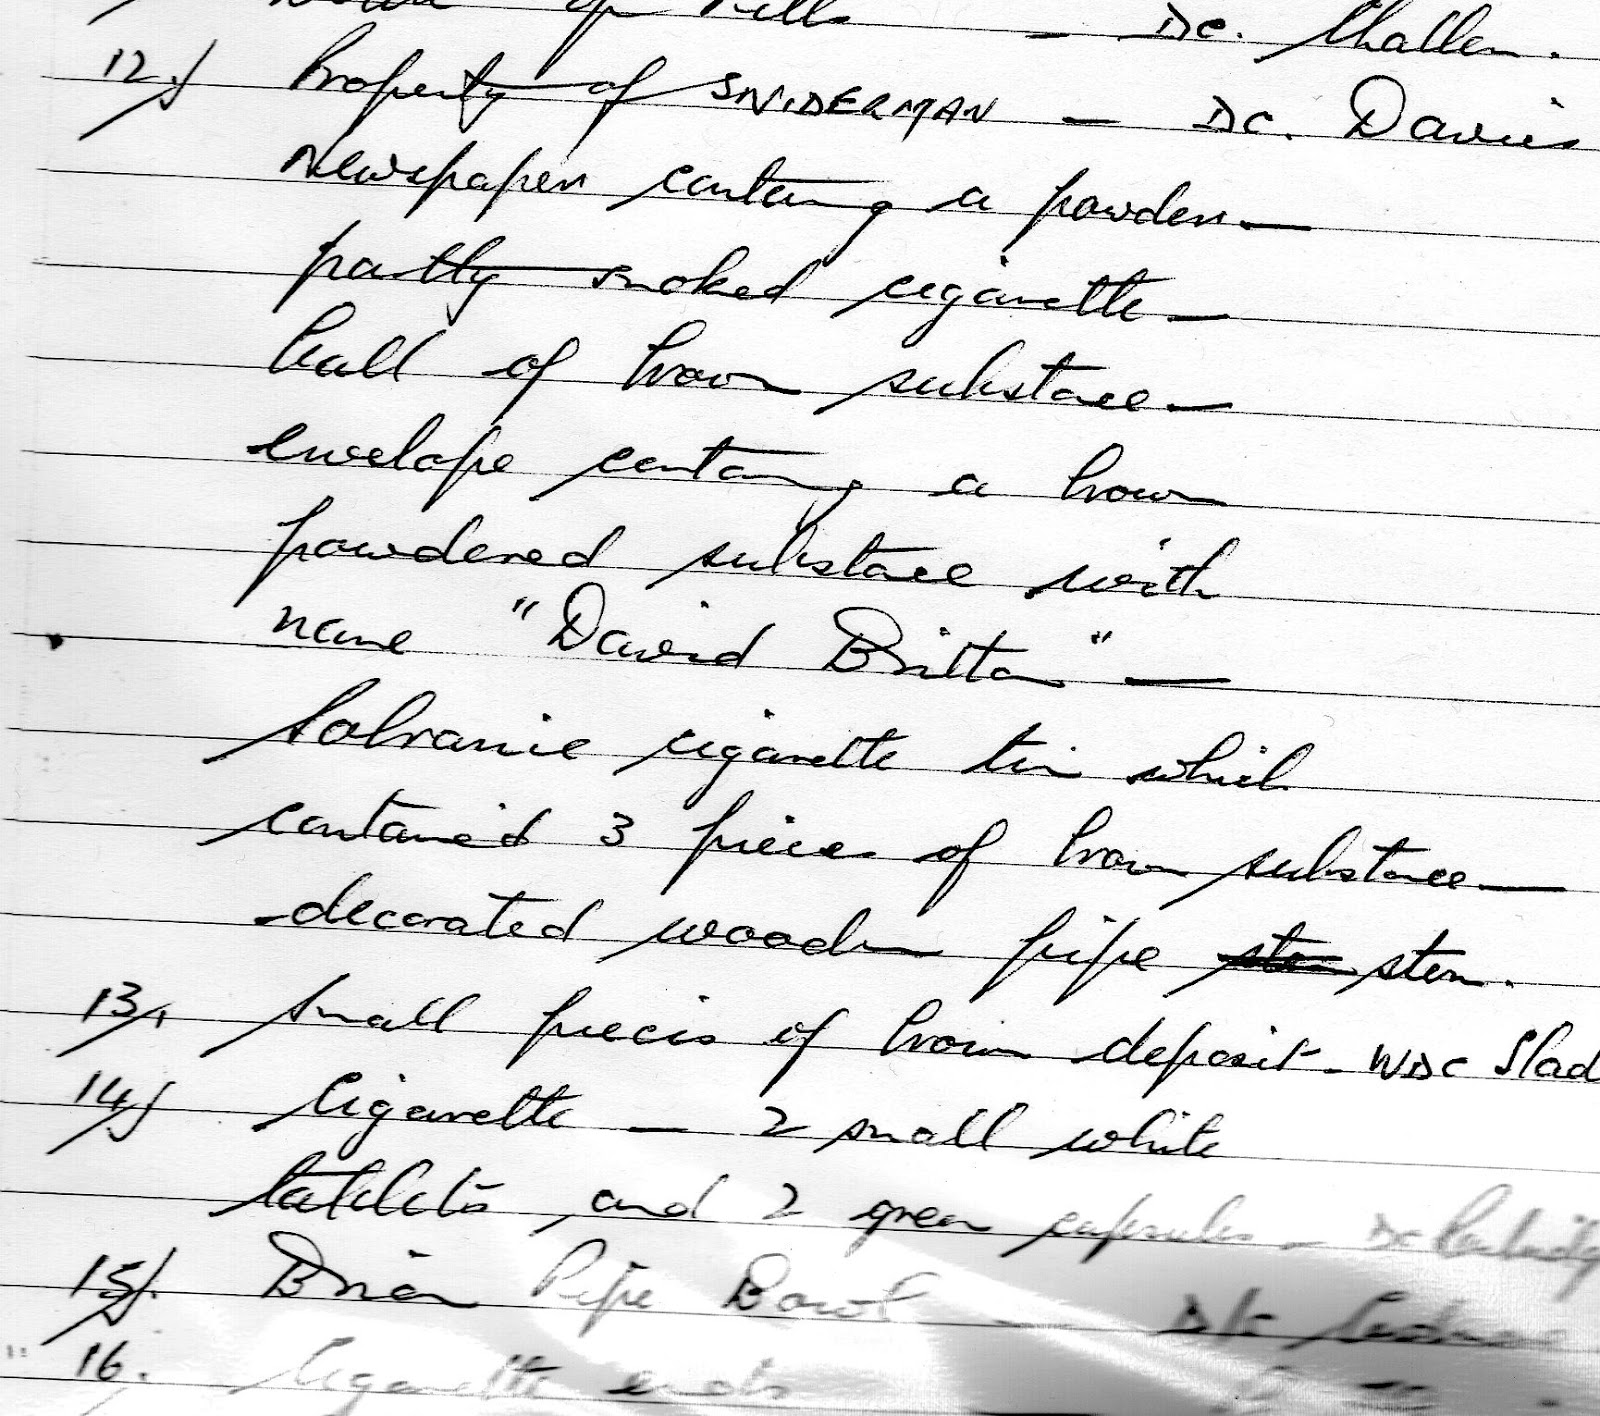 of Pills — DC. Challen.
12) Property of SNIDERMAN — DC. Davies
Newspaper containg a powder —
partly smoked cigarette —
ball of brown substance —
envelope containg a brown
powdered substance with
name "David Britton" —
Sobranie cigarette tin which
contained 3 pieces of brown substance —
-decorated wooden pipe stem stem.
13) Small pieces of brown deposit - WDC Slad
14) Cigarette — 2 small white
tablets and 2 green capsules — DC
15) Briar Pipe Bowl —
16. Cigarette ends